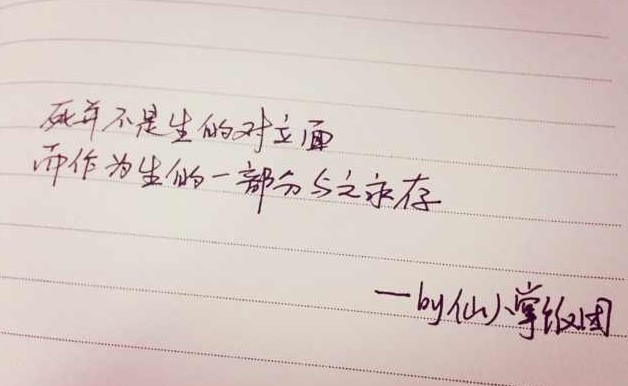 死并不是生的对立面
而作为生的一部分与之永存
—by仙小掌饭团